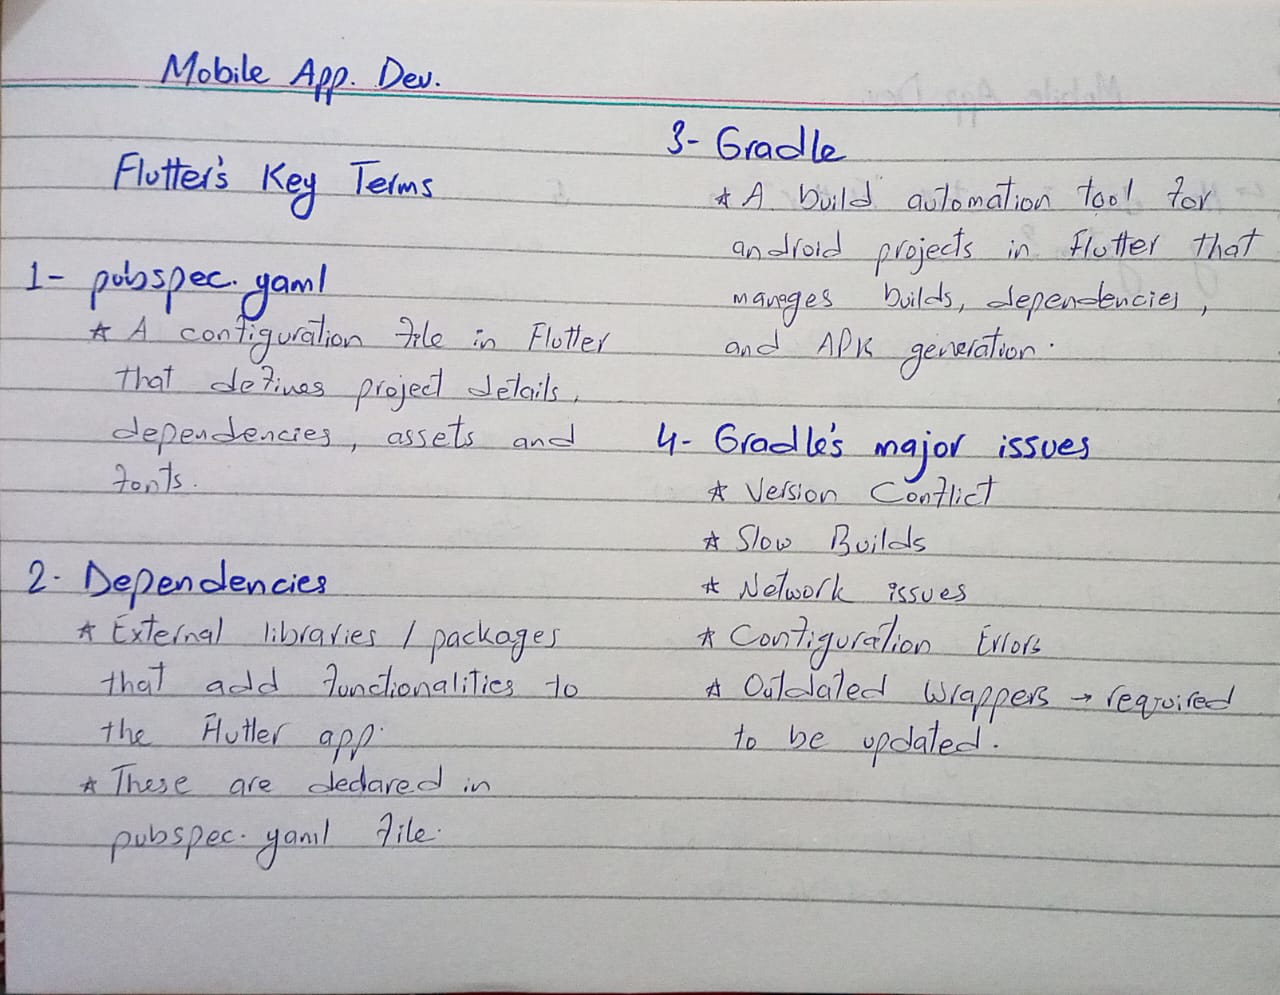 Mobile App. Dev.
Flutter's Key Terms
1- pubspec.yaml
* A configuration file in Flutter
that defines project details,
dependencies, assets and
fonts.
2- Dependencies
* External libraries / packages
that add functionalities to
the Flutter app.
* These are declared in
pubspec.yaml file.
3- Gradle
* A build automation tool for
android projects in Flutter that
manages builds, dependencies,
and APK generation.
4- Gradle's major issues
* Version Conflict
* Slow Builds
* Network issues
* Configuration Errors
* Outdated Wrappers → required
to be updated.